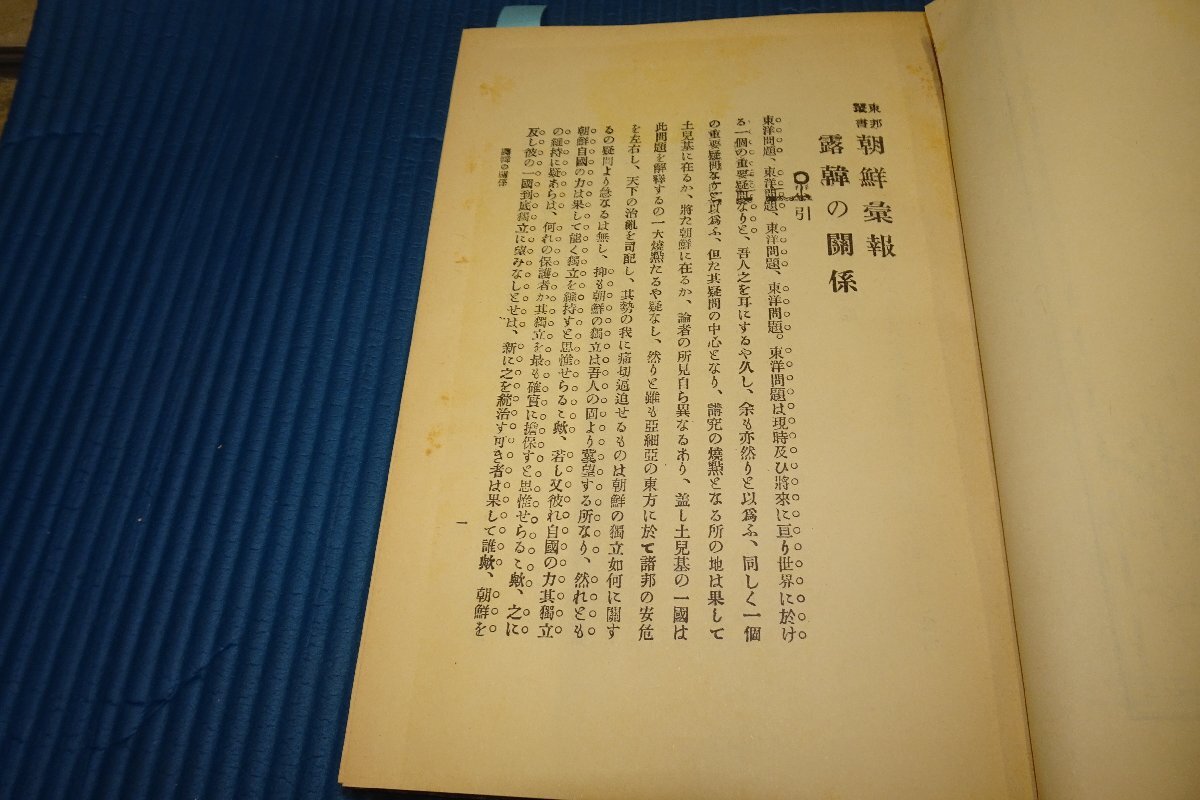 東邦叢書 朝鮮彙報
露韓の關係
○小引
東洋問題、東洋問題、東洋問題、東洋問題。東洋問題は現時及ひ將來に亘り世界に於け
る一個の重要疑問なりと、吾人之を耳にするや久し、余も亦然りと以爲ふ、同しく一個
の重要疑問なりと以爲ふ、但た其疑問の中心となり、講究の燒點となる所の地は果して
土兒基に在るか、將た朝鮮に在るか、論者の所見自ら異なるあり、盖し土兒基の一國は
此問題を解釋するの一大燒點たるや疑なし、然りと雖も亞細亞の東方に於て諸邦の安危
を左右し、天下の治亂を司配し、其勢の我に痛切逼迫せるものは朝鮮の獨立如何に關す
るの疑問より急なるは無し、抑も朝鮮の獨立は吾人の固より冀望する所なり、然れとも
朝鮮自國の力は果して能く獨立を維持すと思惟せらるゝ歟、若し又彼れ自國の力其獨立
の維持に疑あらは、何れの保護者か其獨立を最も確實に擔保すと思惟せらるゝ歟、之に
及し彼の一國到底獨立に望みなしとせは、新に之を統治す可き者は果して誰歟、朝鮮を
露韓の關係
一